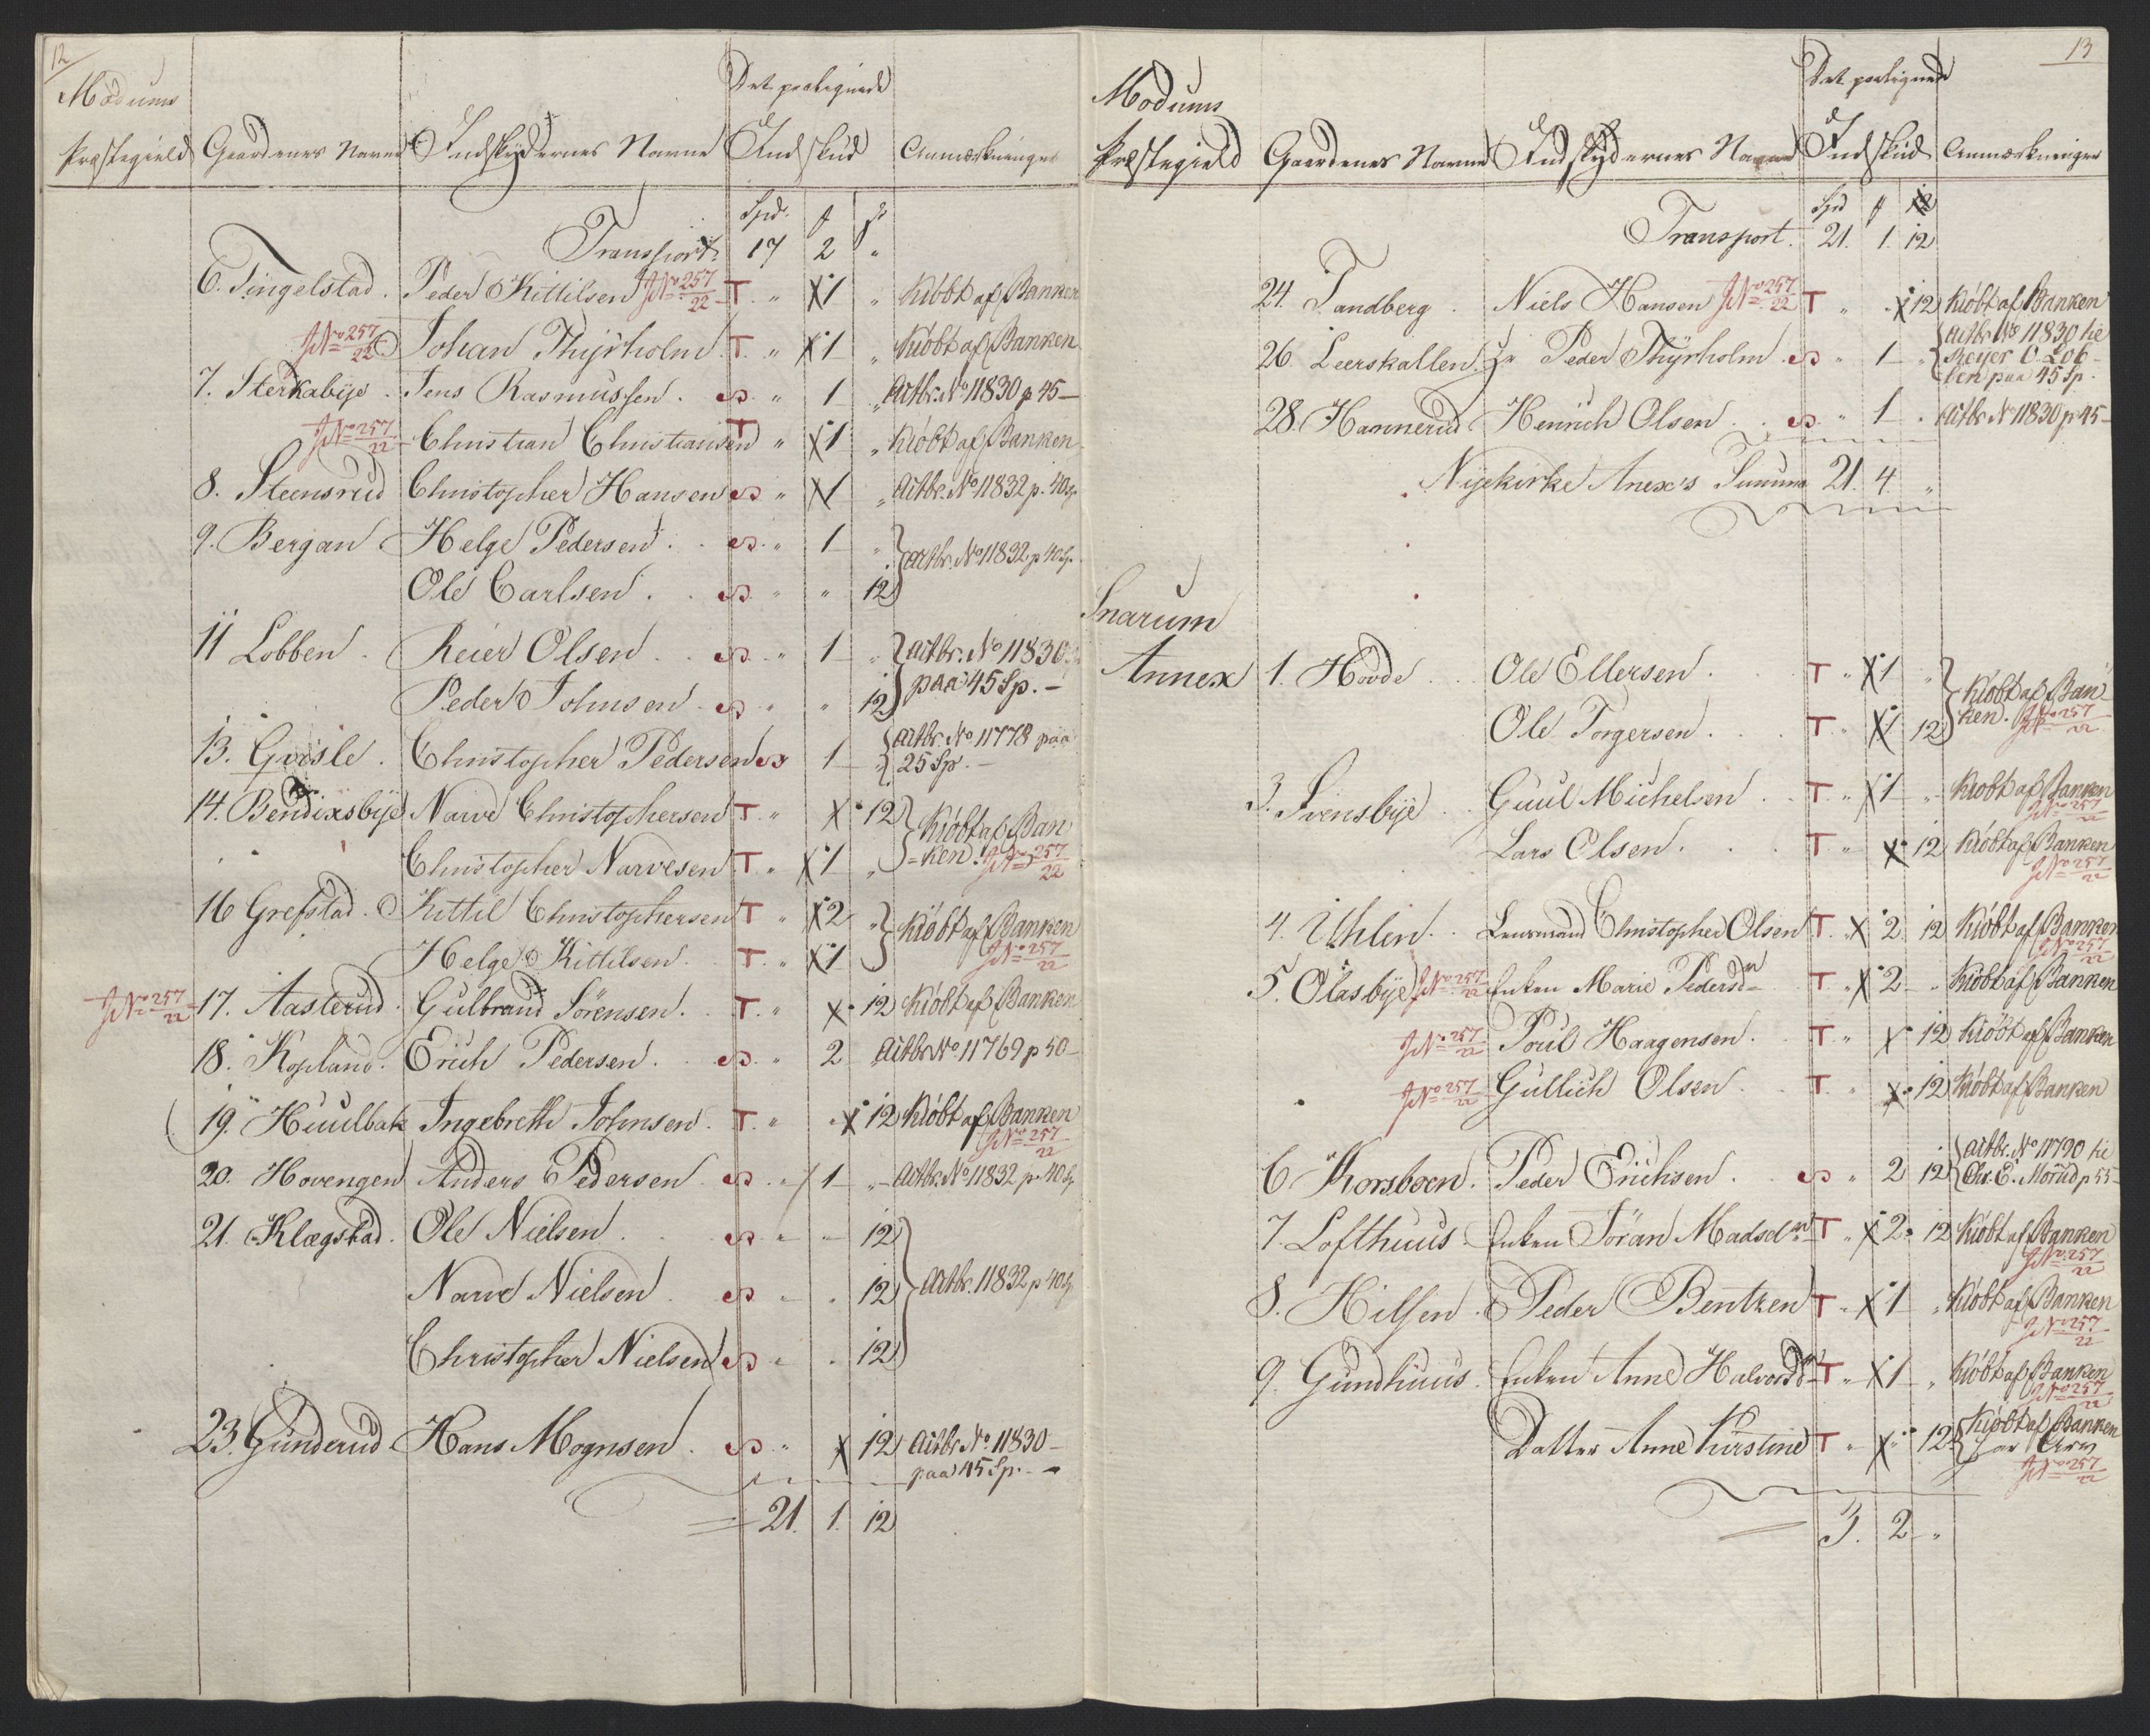 12
Modums
Præstegield Gaardenes Navne Indskydernes Navne Det paalignede Indskud Anmærkninger
Spd. ʄ ß
Transport. 17 2 "
6. Tingelstad. Peder Kittilsen J No 257/22 T. " X1 " kiöbt af Banken
J No 257/22 Johan Thyrholm T. " X1 " kiöbt af Banken
7. Sterkabye. Jens Rasmussen. s " 1 " actbr. No 11830 p 45-
J No 257/22 Christian Christiansen T " X1 " kiöbt af Banken
8. Steensrud Christopher Hansen s " X1 " Actbr. No 11832 p. 40 Sp
9. Bergan Helge Pedersen. s " 1 " actbr. No 11832 p 40 Sp.
Ole Carlsen. s " " 12
11 Lobben. Reier Olsen. s " 1 " actbr. No 11830
Peder Johnsen s " " 12 paa 45 Sp. -
13. Goosle. Christopher Pedersen s 1 " actbr. No 11778 paa
25 Sp. -
14. Bendixsbye Narve Christophersen T. " X " 12 kiöbt af Ban
Christopher Narvesen T. " X1 " =ken. J No 257/22
16 Grefstad. Kittil Christophersen T " X2 " kiöbt af Banken
Helge Kittilsen. T. " X1 J No 257/22
J No 257/22 17. Aasterud. Gulbrand Sörensen. T. " X " 12 kiöbt af Banken
18. Kopland. Erich Pedersen. s " 2 actbr No 11769 p 50-
19. Huulbak Ingebreth Johnsen. T. " X 12 kiöbt af Banken
J No 257/22
20. Hovengen Anders Pedersen s " 1 " actbr. No 11832 p. 40 Sp
21. Klægstad. Ole Nielsen. s " " 12
Narve Nielsen. s " " 12 actbr. 11832 p 40 Sp
Christopher Nielsen s " " 12
23. Gunderud Hans Mognsen. s " X 12 actbr. No. 11830-
paa 45 Sp. -
21. 1. 12
13
Modums
Præstegield Gaardenes Navne Indskydernes Navne Det paalignede Indskud Anmærkninger
Spd ʄ ß
Transport. 21. 1. 12
24. Tandberg. Niels Hansen J No 257/22 T " X 12 kiöbt af Banken
26. Leerskallen. Hr Peder Thyrholm. s " 1 " actbr. No 11830 hé
Reyer O. Lob-
ben paa 45 Sp.
28. Hannerud Henrich Olsen. s " 1 " actbr No 11830 p 45-
Nyekirke Anex's Summa 21. 4. "
Snarum
Annex 1. Hovde. Ole Ellersen. T " X1 " kiöbt af Ban
Ole Torgersen. T. " X1 12 ken. J No 257/22
3. Svensbye. Guul Michelsen. T. " X1 " kiöbt af Banken
J No 257/22
Lars Olsen. T. " X " 12 kiöbt af Banken
J No 257/22
4. Uhlen. Lensmand Christopher Olsen T. " X 2 12 kiöbt af Banken
J No 257/22
5. Olasbye J No 257/22 Enken Marie Pedersdn T " X 2 " kiöbt af Banken
J No 257/22 Poul Haagensen. T. " X " 12 kiöbt af Banken
J No 257/22 Gullich Olsen. T. " X " 12 kiöbt af Banken
6. Korsboen. Peder Erichsen. s " 2 12 actbr. No 11790 hé
Chr. E. Morud p 55-
7. Lofthuus. Enken Jöran Madsdn T " X 2 " 12 kiöbt af Banken
J No 257/22
8. Hilsen. Peder Bentzen T " X1 " kiöbt af Banken
J No 257/22
9. Gundhuus. Enken Anne Halvorsdn T " X1 " kiöbt af Banken
J No 257/22
Datter Anne Kirstine T " X " 12 kiöbt af Banken
J No 257/22
3. 2 "